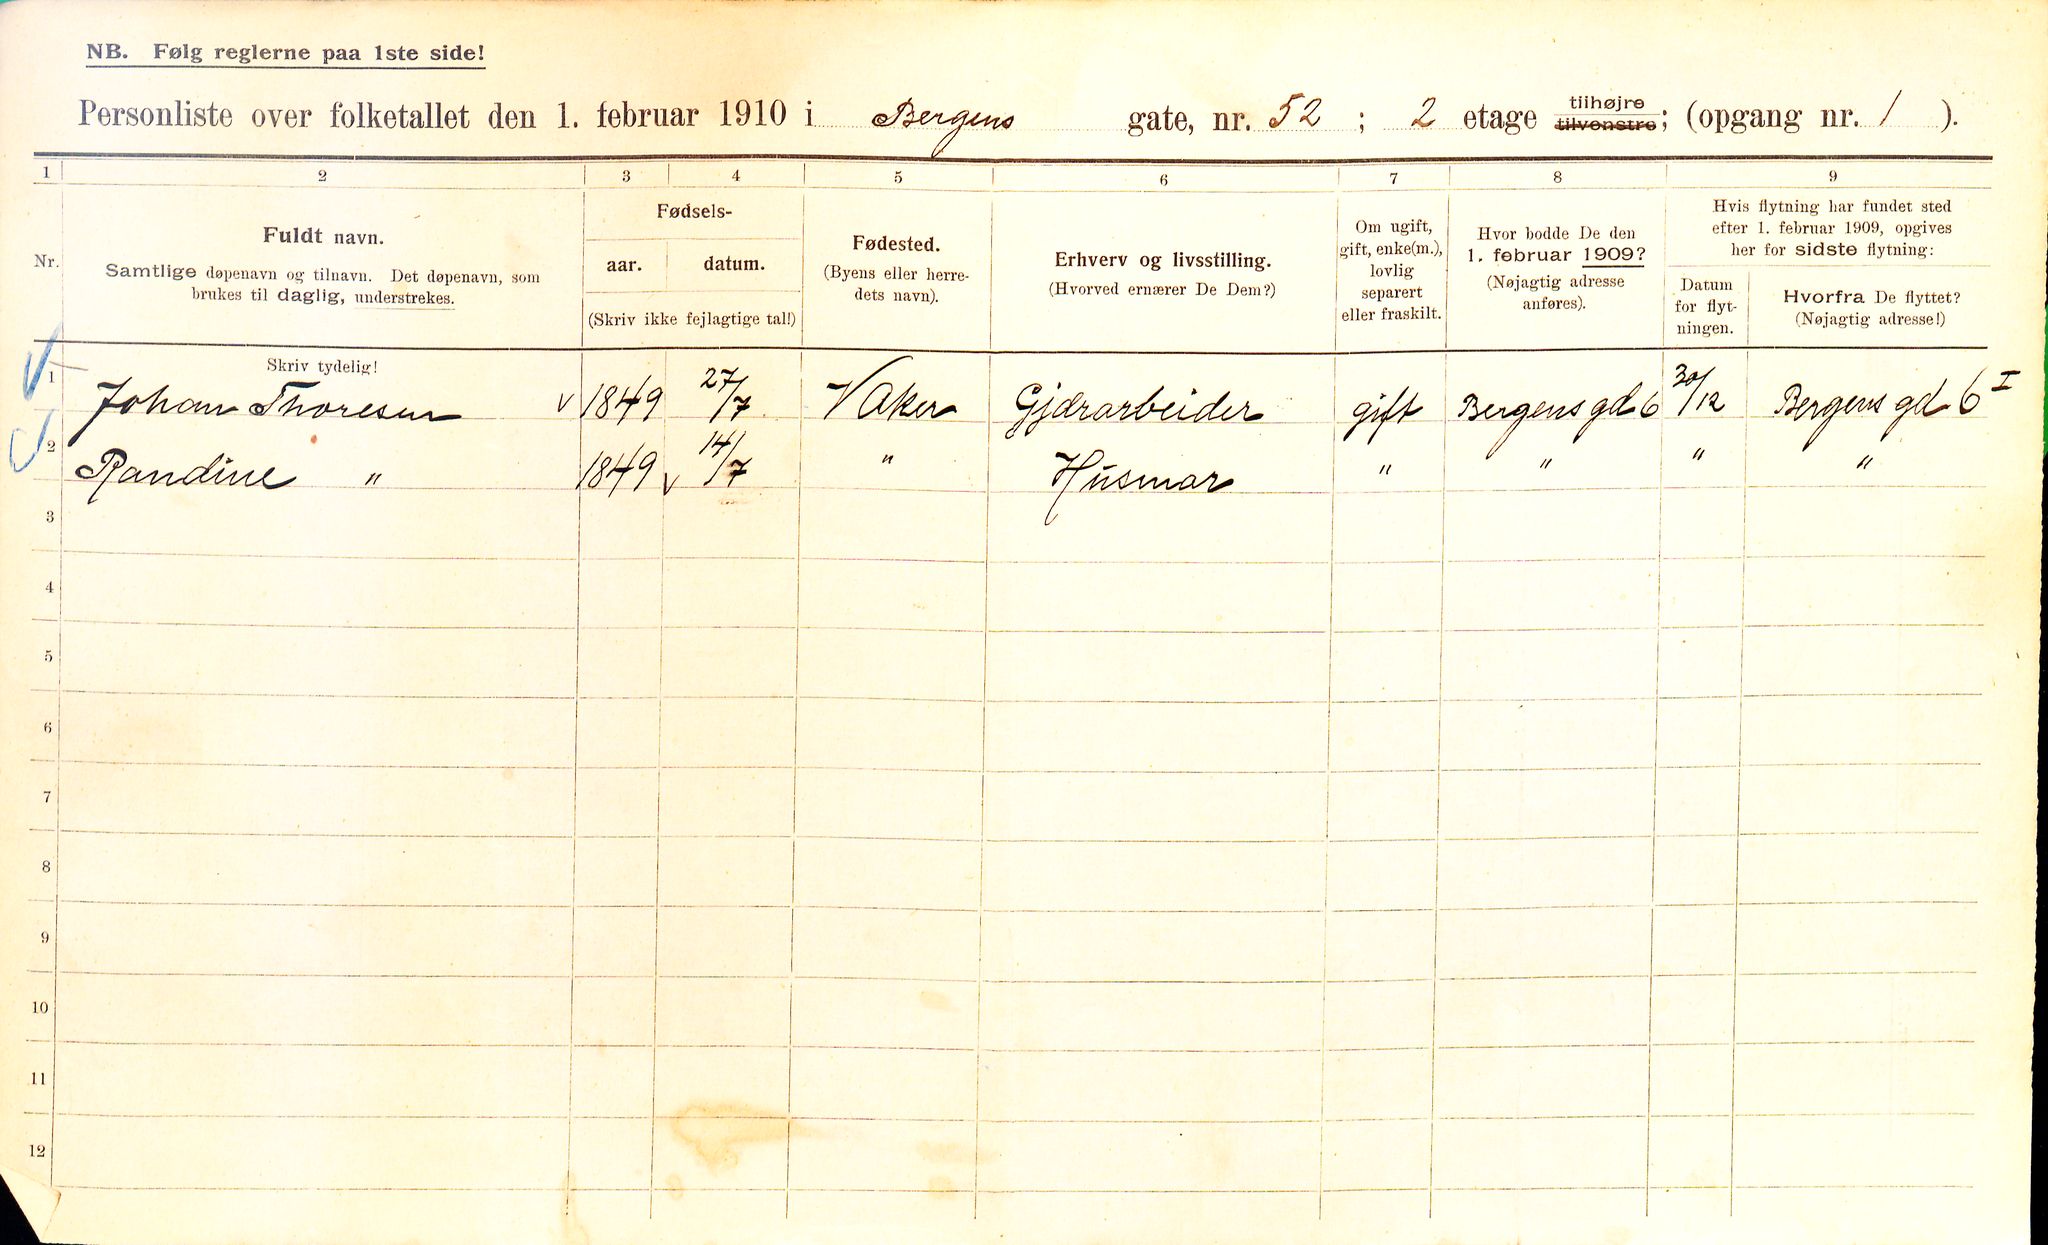 NB. Følg reglerne paa 1ste side!
Personliste over folketallet den 1. februar 1910 i Bergens gate, nr. 52 ; 2 etage tilhøjre tilvenstre; (opgang nr. 1 ).
1 2 3 4 5 6 7 8 9
Nr.
Fuldt navn.
Samtlige døpenavn og tilnavn. Det døpenavn, som
brukes til daglig, understrekes.
Fødsels-
aar. datum.
(Skriv ikke fejlagtige tal!)
Fødested.
(Byens eller herre-
dets navn).
Erhverv og livsstilling.
(Hvorved ernærer De Dem?)
Om ugift,
gift, enke(m.),
lovlig
separert
eller fraskilt.
Hvor bodde De den
1. februar 1909?
(Nøjagtig adresse
anføres).
Hvis flytning har fundet sted
efter 1. februar 1909, opgives
her for sidste flytning:
Datum
for flyt-
ningen.
Hvorfra De flyttet?
(Nøjagtig adresse!)
Skriv tydelig!
1 Johan Thoresen v 1849 27/7 Vaker Gjørarbeider gift Bergens gd 6 30/12 Bergens gd 6 I
2 Randine " 1849 v 14/7 " Husmor " " " "
3
4
5
6
7
8
9
10
11
12